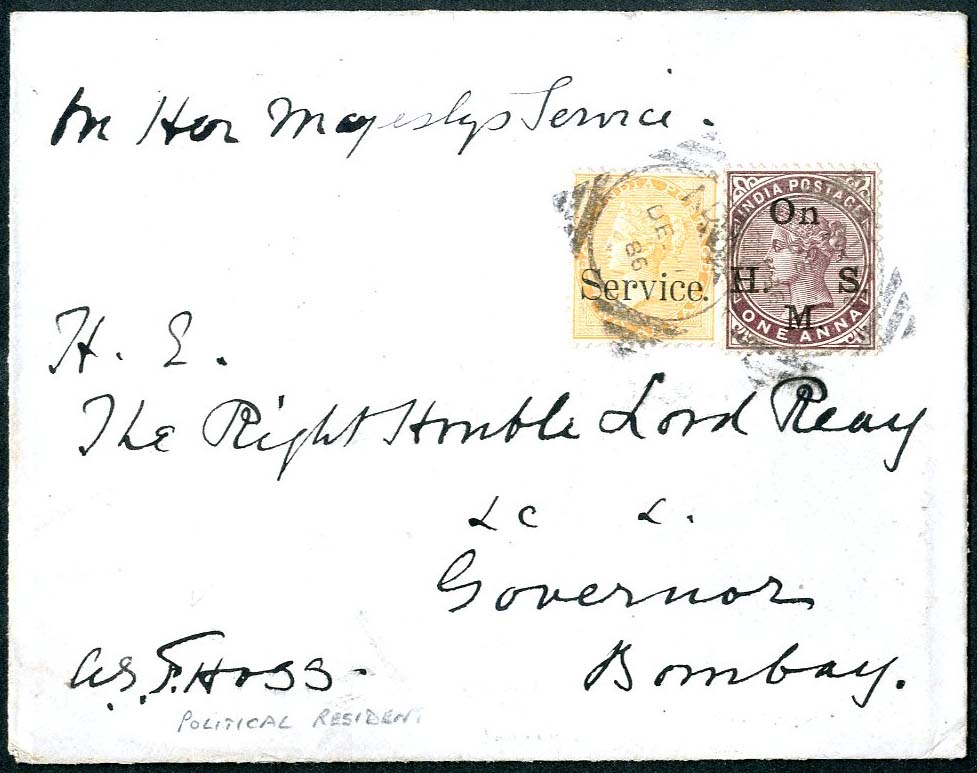 On Her Majestys Service.
INDIA POSTAGE
On
H. S.
M
ONE ANNA
INDIA
Service.
DE
86
H. E.
The Right Honble Lord Reay
&c &.
Governor
Bombay.
Hogg
POLITICAL RESIDENT